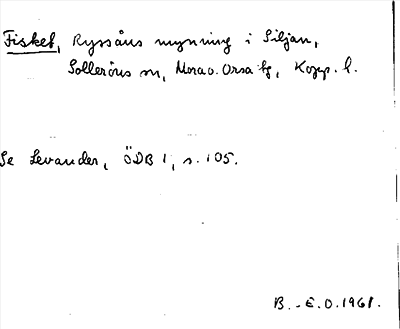 Fisket, Ryssåns mynning i Siljan,
Solleröns sn, Mora o. Orsa tg, Kopp. l.
Se Levander, ÖDB 1, s. 105.
B.-E.O. 1961.